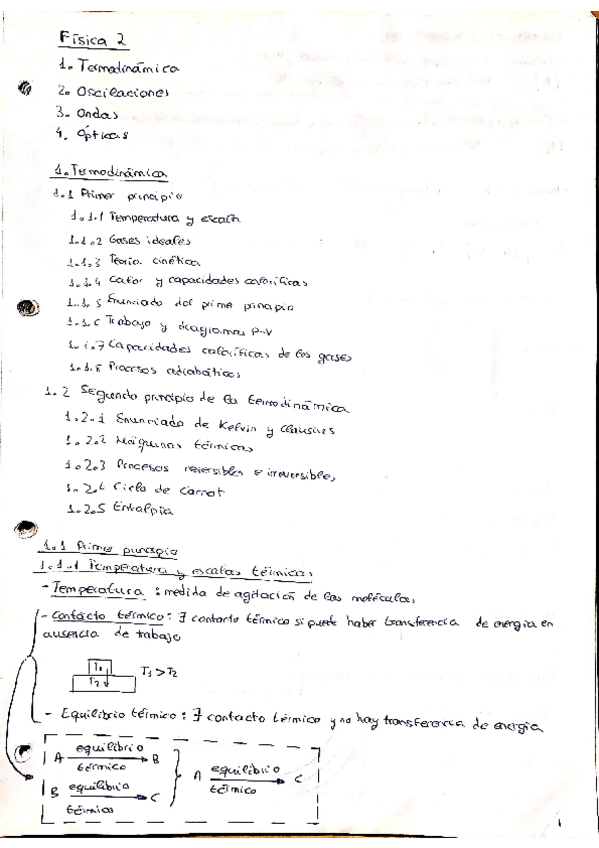 Física 2
1. Termodinámica
2. Oscilaciones
3. Ondas
4. Ópticas
1. Termodinámica
1.1 Primer principio
1.1.1 Temperatura y escala
1.1.2 Gases ideales
1.1.3 Teoria cinética
1.1.4 Calor y capacidades caloríficas
1.1.5 Enunciado del primer principio
1.1.6 Trabajo y diagramas P-V
1.1.7 Capacidades caloríficas de los gases
1.1.8 Procesos adiabáticos
1.2 Segundo principio de la termodinámica
1.2.1 Enunciado de Kelvin y Clausius
1.2.2 Máquinas térmicas
1.2.3 Procesos reversibles e irreversibles
1.2.4 Ciclo de Carnot
1.2.5 Entalpia
1.1 Primer principio
1.1.1 Temperatura y escalas térmicas
- Temperatura : medida de agitación de las moléculas
- Contacto térmico : ∃ contacto térmico si puede haber transferencia de energia en
ausencia de trabajo
T1
T2
T1 > T2
- Equilibrio térmico : ∃ contacto térmico y no hay transferencia de energia
A equilibrio térmico B
B equilibrio térmico C
A equilibrio térmico C
1